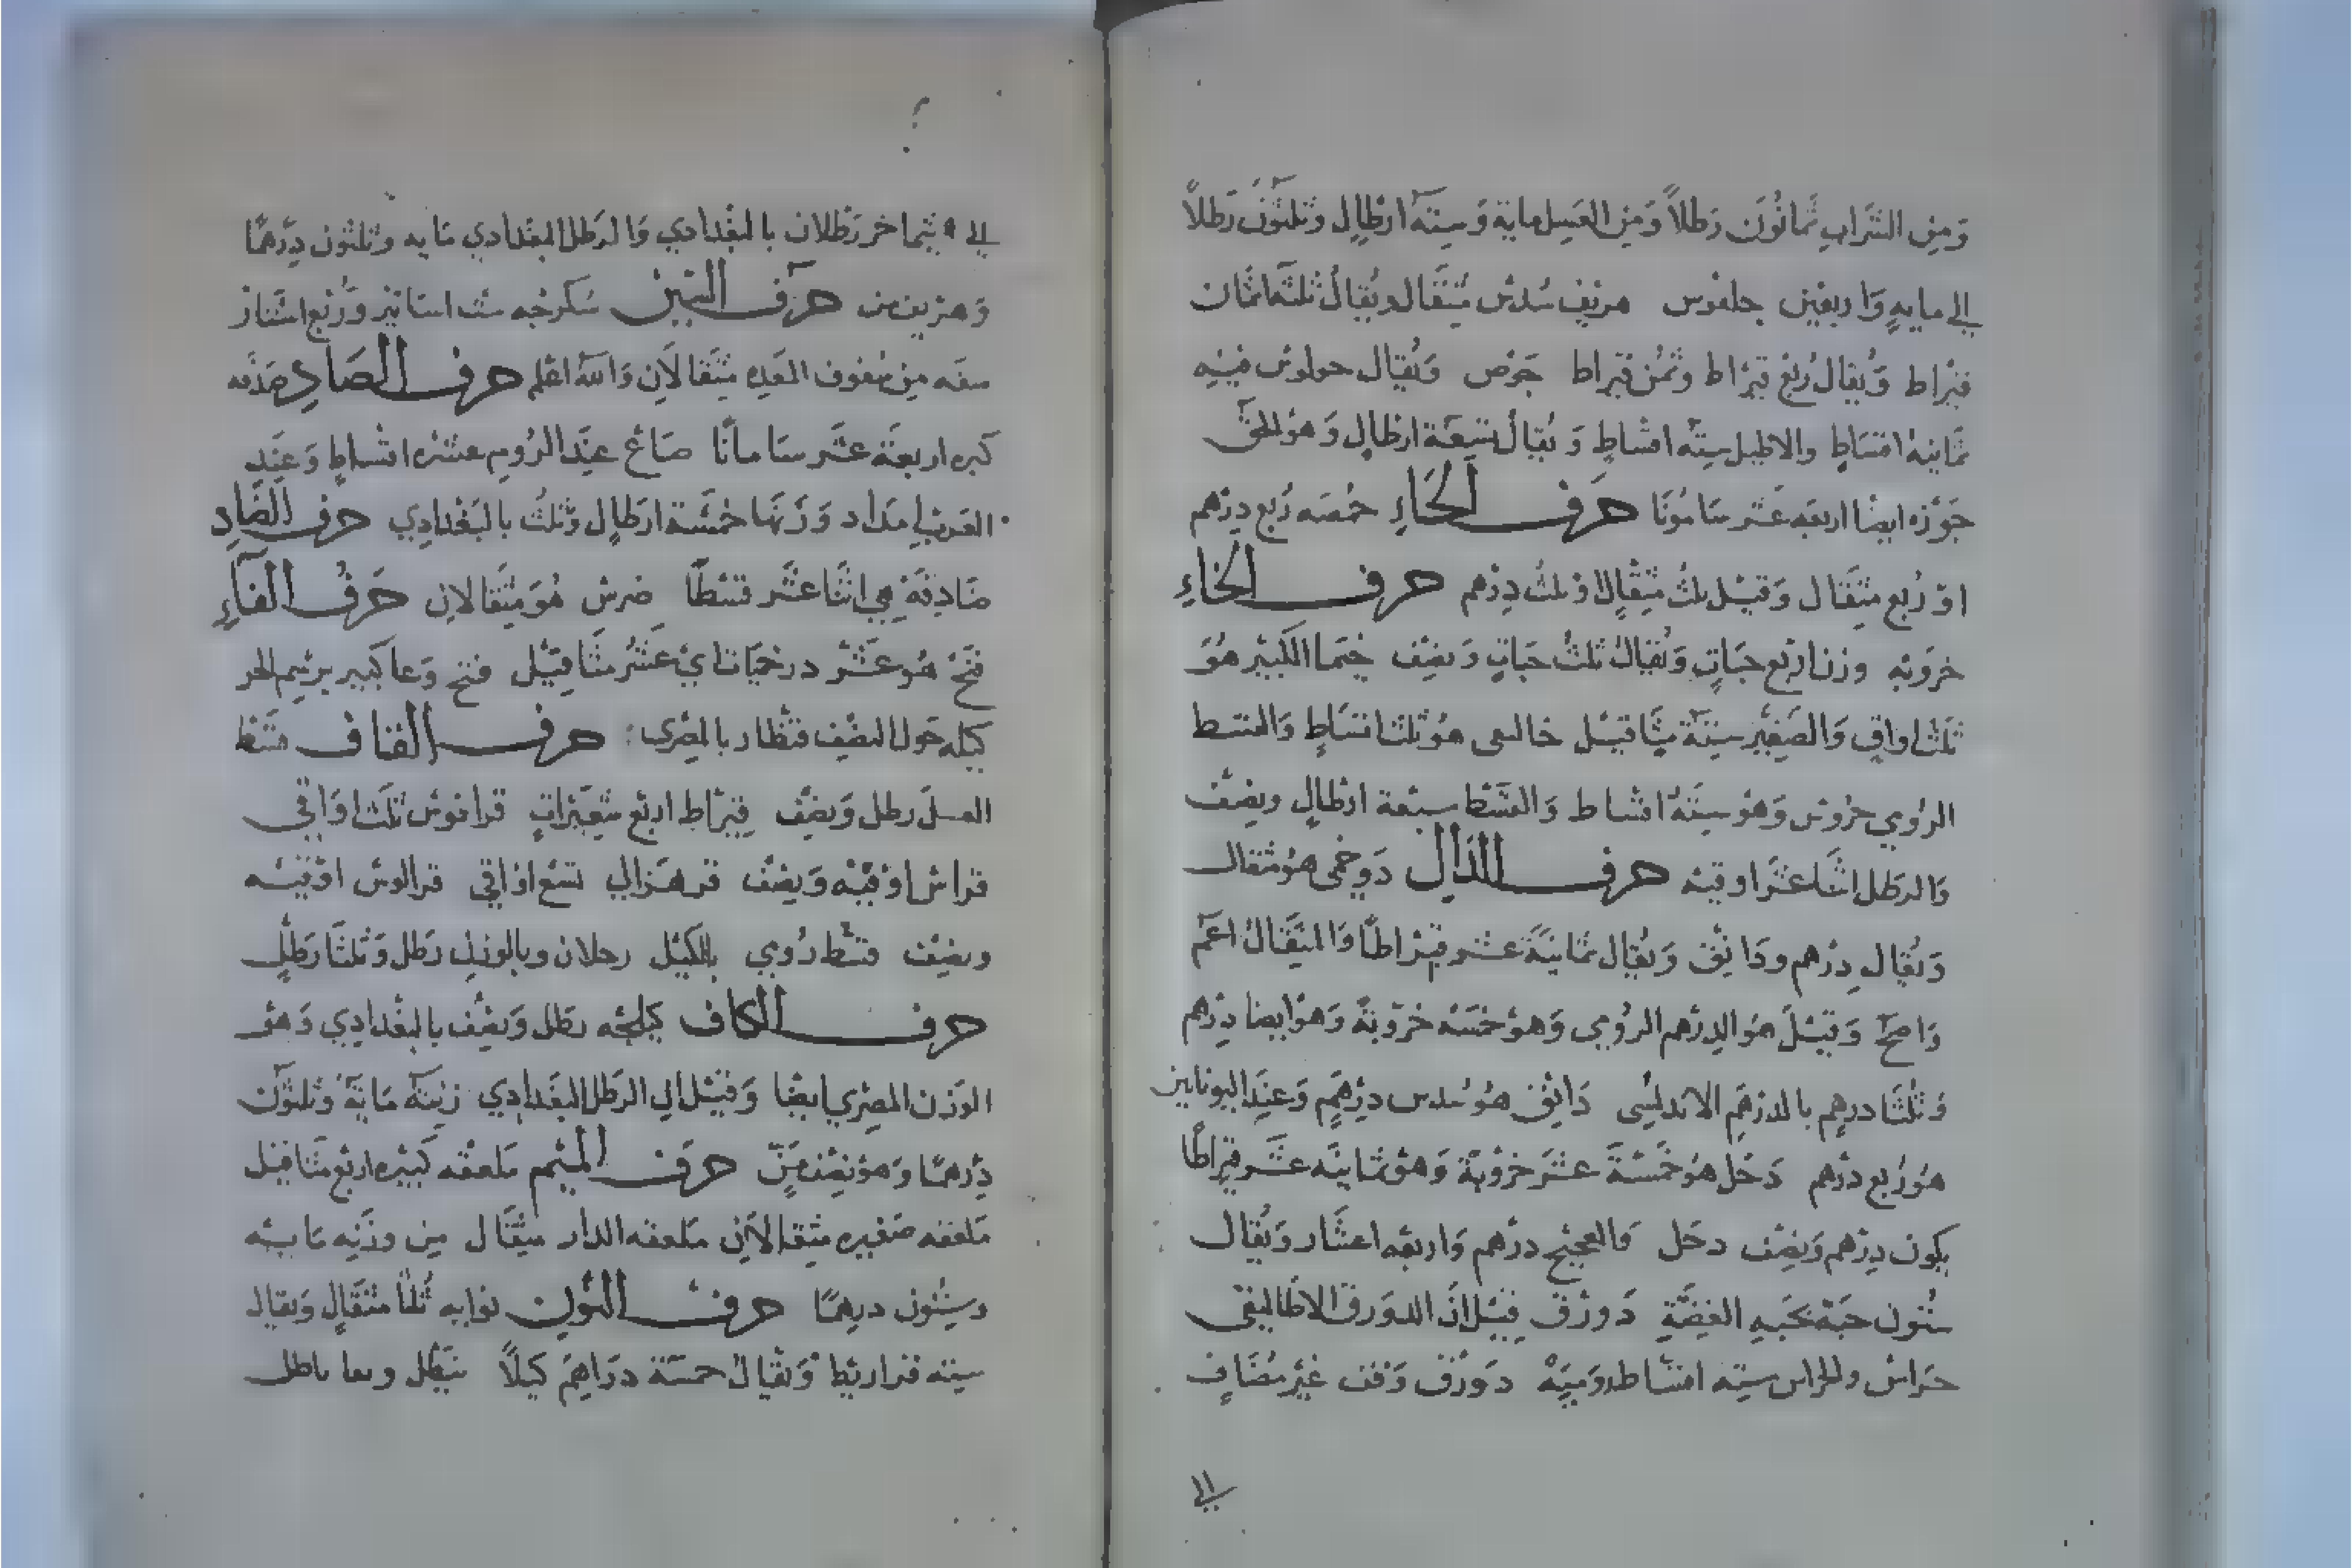 وَمِن الشَرَابِ ثَمانُونَ رَطلاً وَمِن العَسِل ماية وَسِتةَ ارْطالٍ وَثلثُونَ رَطلاً
الي مايهٍ وَاربعِين جلفوس هو نِصف سُدس مِثقَال ويُقالُ ثلثة اثمان
قيراط وَيُقال رُبع قيراط وثمُن قيراط جَوْض وَيُقال حولوش
ثمانية اقسَاطٍ والاطيل ستة اقسَاطٍ وَيُقال تسِعَة ارطالٍ وَهوَ الحَق
جَوْزه ايضًا اربعَه عَشر سَامُونَا حَرف الحَاءِ حُمصَه رُبع دِرْهم
اوْ رُبع مثِقَال وَقيْل ثلث مثِقال وَثلثُ دِرْهم حرف الخاءِ
خروَبه وزن اربَع حبَاتٍ وَيُقال ثلثُ حباتٍ وَنِصف خيمَا الكَبيْر هُوَ
ثلَث اواقٍ وَالصَغِيْر سِتَة مثَاقيْل هوُ ثلث اقسَاطٍ وَالقسط
الرُومي خرُوس وَهوَ سِتَةُ اقسْاط وَالقسْط سبْعة ارْطالٍ ونصِف
وَالرطل اثنَا عَشَرَ اوقيَه حرف الدَال دَرخمى هوُ مثقال
وَيُقال دِرْهم ودَانِق وَيُقال ثمَانيَةَ عَشر قيْراطًا وَالمثِقَالُ اعَم
وَاصحَ وَقيْلَ هوَ الدِرْهم الرُومي وَهوَ خمسَه خرّوبَة وَهوَ ايضا دِرْهم
وَثلثَا درهمٍ بالدرْهَم الاندلسُى دَانِق هوُ سُدس دِرْهَمٍ وَعِندَ اليونانين
هوُ رُبع درْهم دَخل هوُ خمَسْةَ عشَر خروُبَة وَهوَ ثمانيَه عشَر قيراطًا
يكون دِرْهم وَنصِف دخَل فالعجيْج درْهم وَاربعَه اعشَار وَيُقال
ستُون حبَة بحَبهِ الفِضَةِ دَورْق قِيْل انَ الدَورق الاطاليقى
خرَاس والخراس سِته اقسَاط رومَيةْ دَورْق وَقت غيْر مُضَافٍ
الي
الي شيما خر رَطلان بالبغْدادي وَالرَطل البغْدادي مَايه وثلثون دِرْهمًا
وَهوَ نِصف من حَرف السِيْن سُكرجَه ست اساتير وَرُبْع استار
سعَه مِن سُفوف المعَده مثِقالَان وَاللهُ اعْلم حرف الصَادِ صَدَفه
كبيره اربعَة عَشَر سَامانًا صَاعْ عِندَ الرُومِ عشَره اقسْاطٍ وَعنِدَ
العَرب امدَاد وَزَنهَا خمسَة ارَطالٍ وَثلثُ بالبَغْدادِي حرف الضَادِ
صَادِقَة هي اثنَا عشَر قسْطًا ضرس هُوَ مِثقالان حَرفُ الفَآءِ
فتخَ هُو عشَر درخمَيَات ايْ عَشرُ مثَاقيْل فتخ وَعا كبير
كيله حوَل النصِف قنْطار بالمِصرى حرف القاف قسَط
العسل رطل وَنصِف قِيرَاط اربَع شِعَيرَاتٍ قرانوس ثلثَ اوَاقي
قراس اوْقيَة وَنصِف قرهَزالي تسع اوْاقي قرالوس اوْقيَه
ونصِف قسْط رُومي بالكَيْل رحلان وبالوزن رَطل وَثلثَا رَطلٍ
حرف الكاف كيلجَه رطل وَنصِف بالبغْدادِي وَهوَ
الوَزن المصِري ايضَا وَقيْل ان الرَطل البغَدادِي زِنتَه مَايةَ وَثلثَون
دِرْهمًا وَهوَ نِصْف مَنّ حرَف المْيم مَلعقَه كبيْره اربَع مثَاقيْل
مَلعقه صَغيره مثِقالاَن مَلعقه الدار مثِقَال من وزْنِه مَايَه
وستُون درهمًا حرف النُون نوايه ثُلثا مثقَالٍ وَيقال
ستة قراريْط وَيُقال خمسَة درَاهِمَ كيلاً